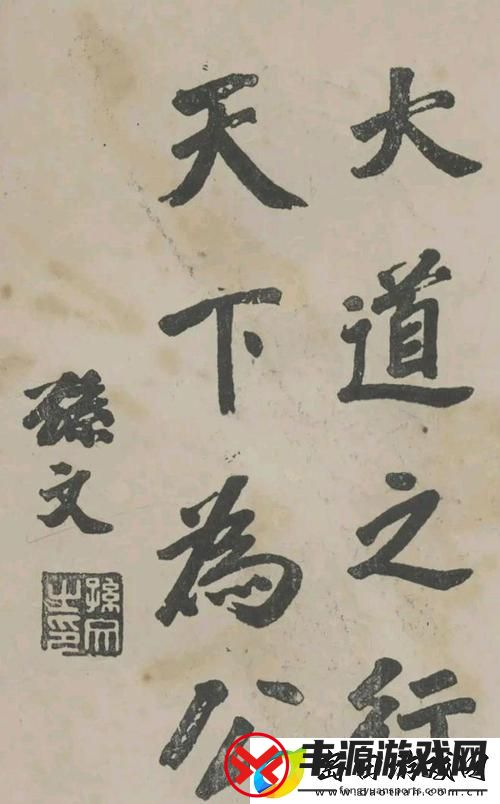 大道之行
天下為公
孫文
孫文之印
丰源游戏网
fengyuansports.com
www.gaotrails.com.cn